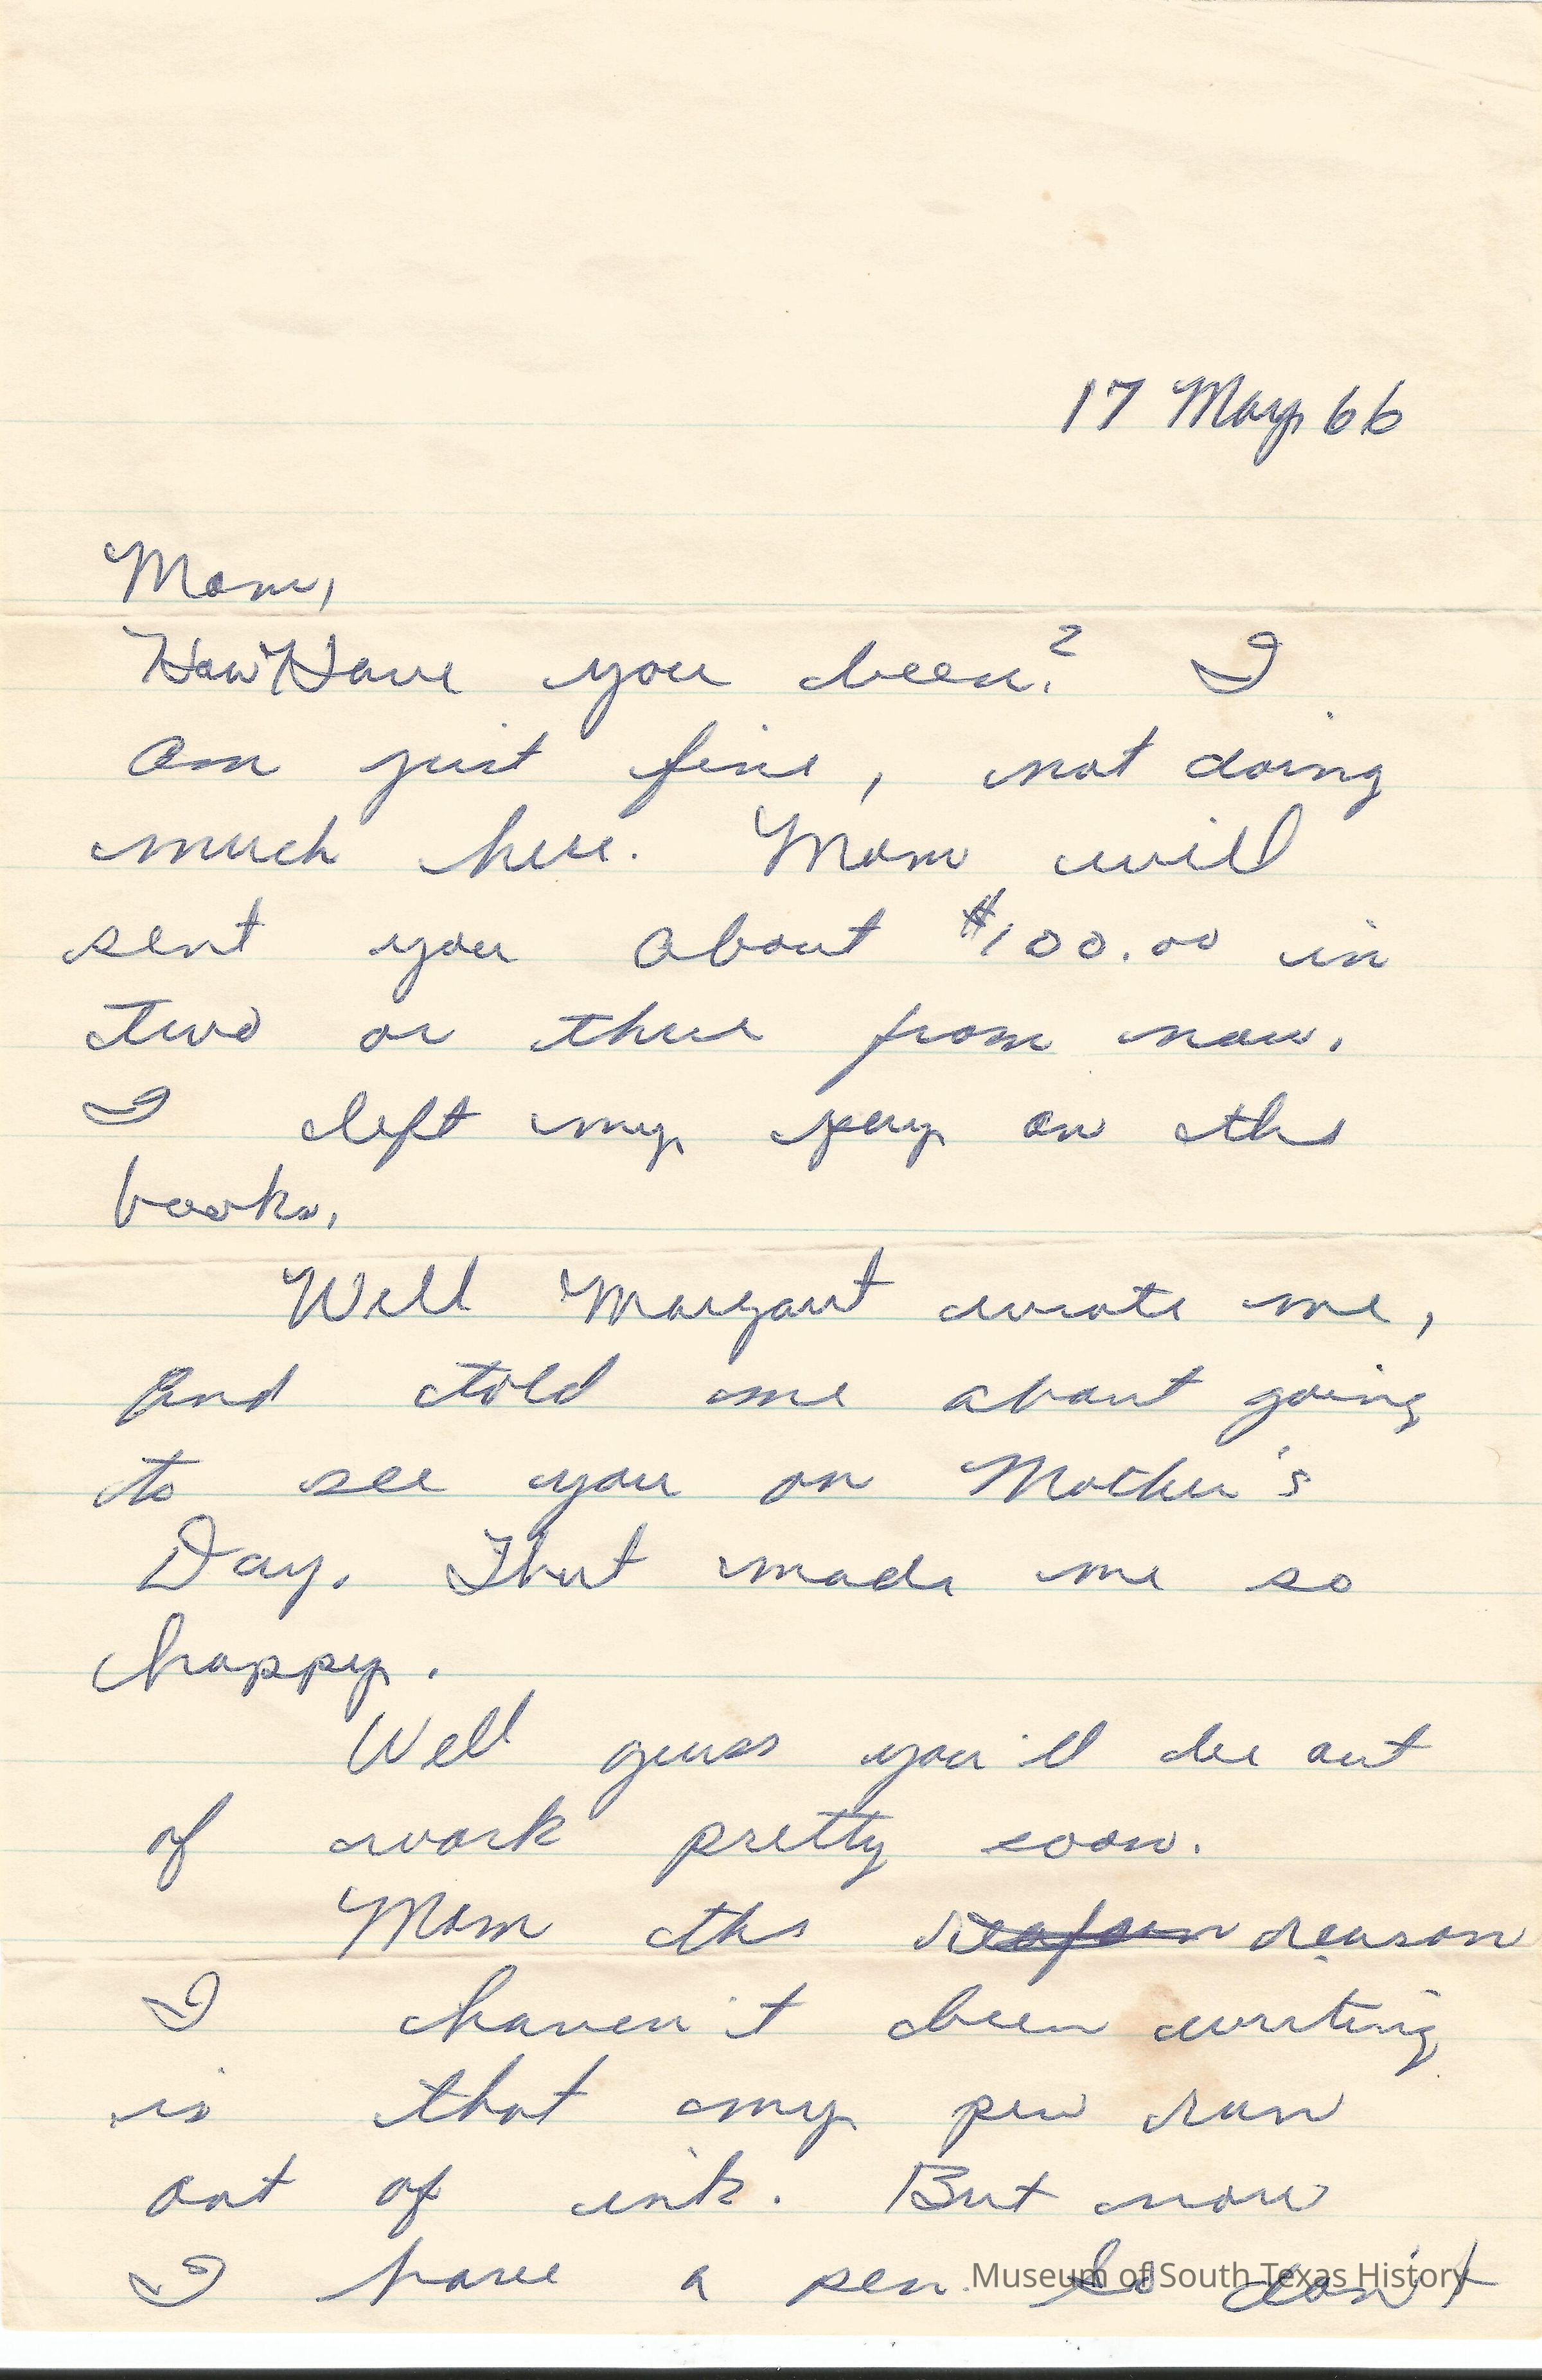 17 May 66
Mom,
How Have you been? I
am just fine, not doing
much here. Mom will
sent you about $100.00 in
two or three from now.
I left my pay on the
books.
Well Margaret wrote me,
and told me about going
to see you on Mother's
Day. That made me so
happy.
Well guess you'll be out
of work pretty soon.
Mom the reason
I haven't been writing
is that my pen ran
out of ink. But now
I have a pen. So don't
Museum of South Texas History